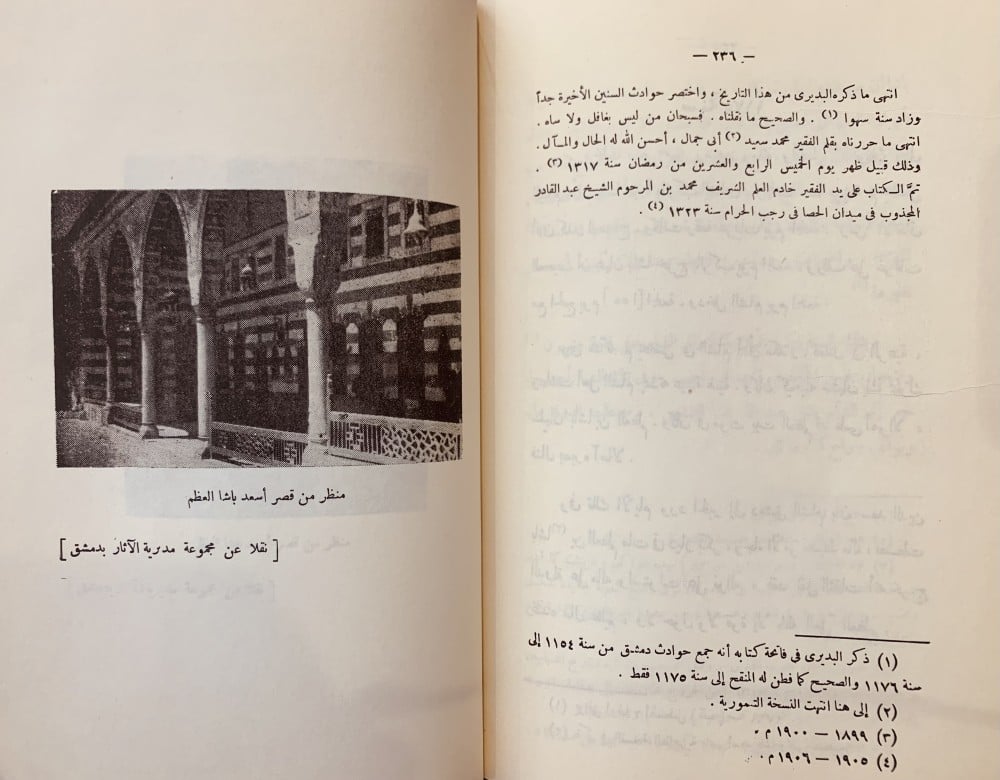 — ٢٣٦ —
انتهى ما ذكره البديرى من هذا التاريخ ، واختصر حوادث السنين الأخيرة جداً
وزاد سنة سهوا (١) . والصحيح ما نقلناه . فسبحان من ليس بغافل ولا ساه .
انتهى ما حررناه بقلم الفقير محمد سعيد (٢) أبى جمال ، أحسن الله له الحال والمآل .
وذلك قبيل ظهر يوم الخميس الرابع والعشرين من رمضان سنة ١٣١٧ (٣) .
تمَّ الكتاب على يد الفقير خادم العلم الشريف محمد بن المرحوم الشيخ عبد القادر
المجذوب فى ميدان الحصا فى رجب الحرام سنة ١٣٢٣ (٤) .
(١) ذكر البديرى فى فاتحة كتابه أنه جمع حوادث دمشق من سنة ١١٥٤ إلى
سنة ١١٧٦ والصحيح كما فطن له المنقح إلى سنة ١١٧٥ فقط .
(٢) إلى هنا انتهت النسخة التيمورية .
(٣) ١٨٩٩ — ١٩٠٠ م .
(٤) ١٩٠٥ — ١٩٠٦ م .
منظر من قصر أسعد باشا العظم
[ نقلا عن مجموعة مديرية الآثار بدمشق ]